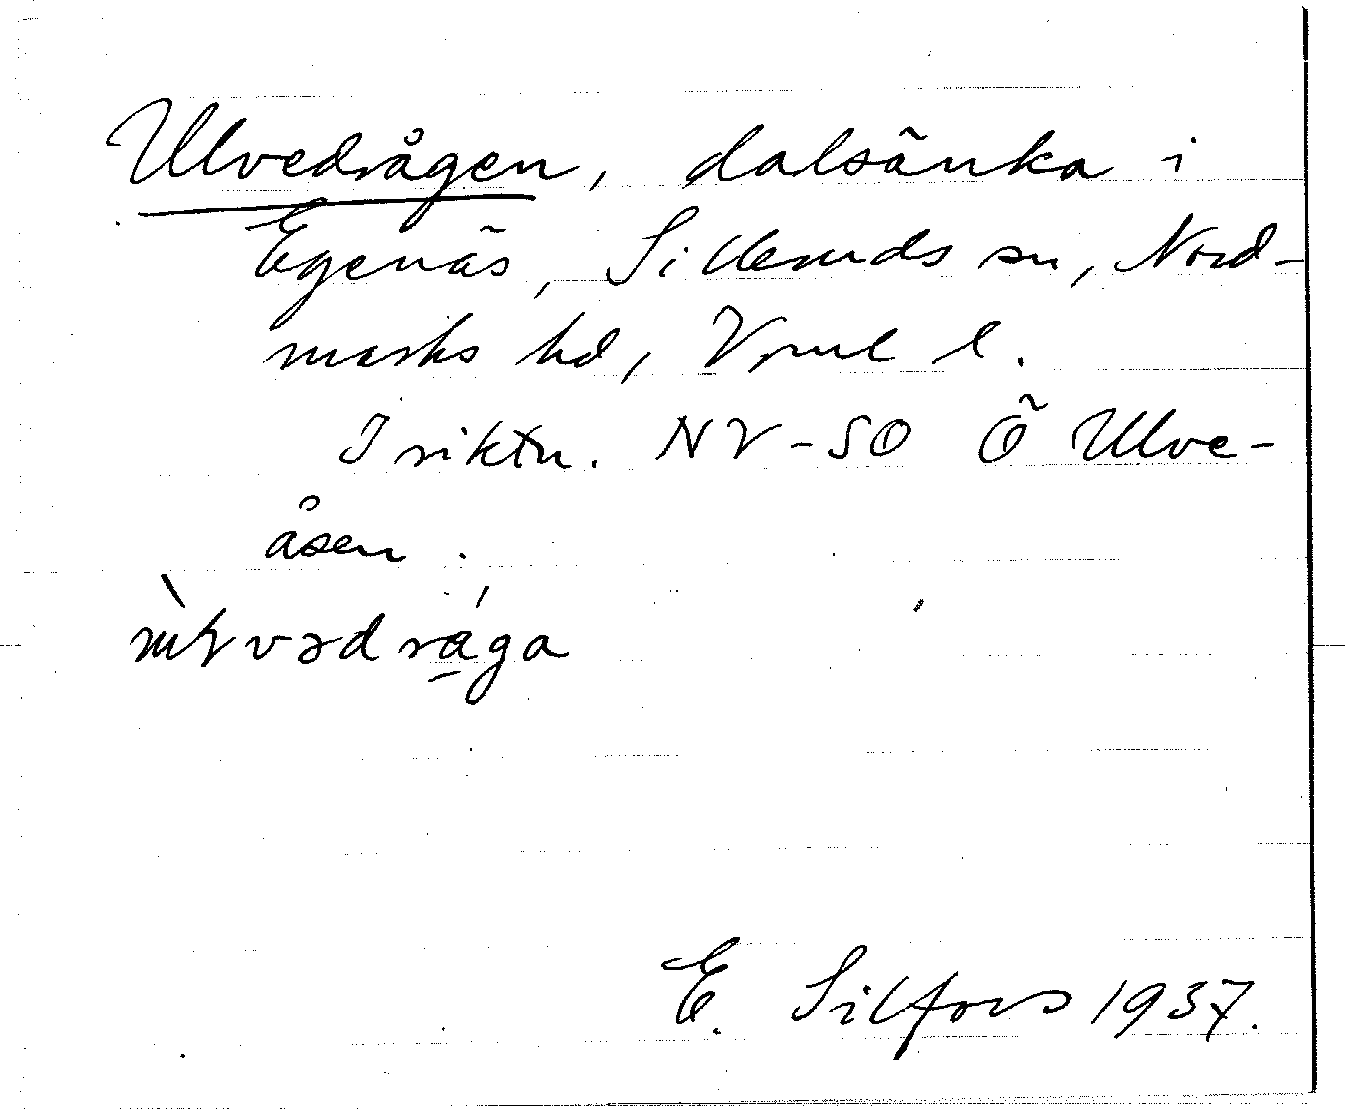 Ulvedrågen, dalsänka i
Egenäs, Silleruds sn, Nord-
marks hd, Vrml l.
I riktn. NV-SO Ö Ulve-
åsen.
E. Silfors 1937.